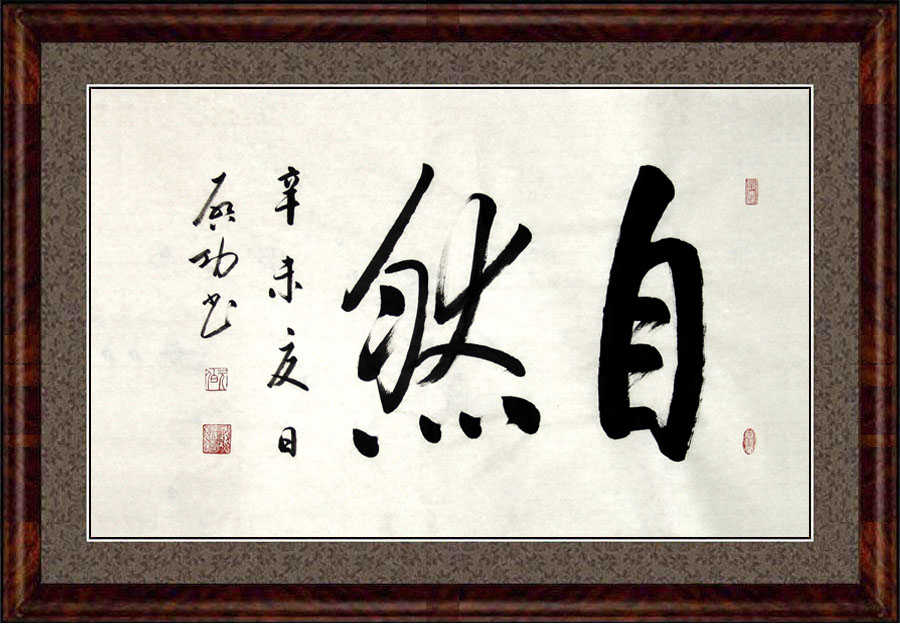 自然
辛未夏日
启功书